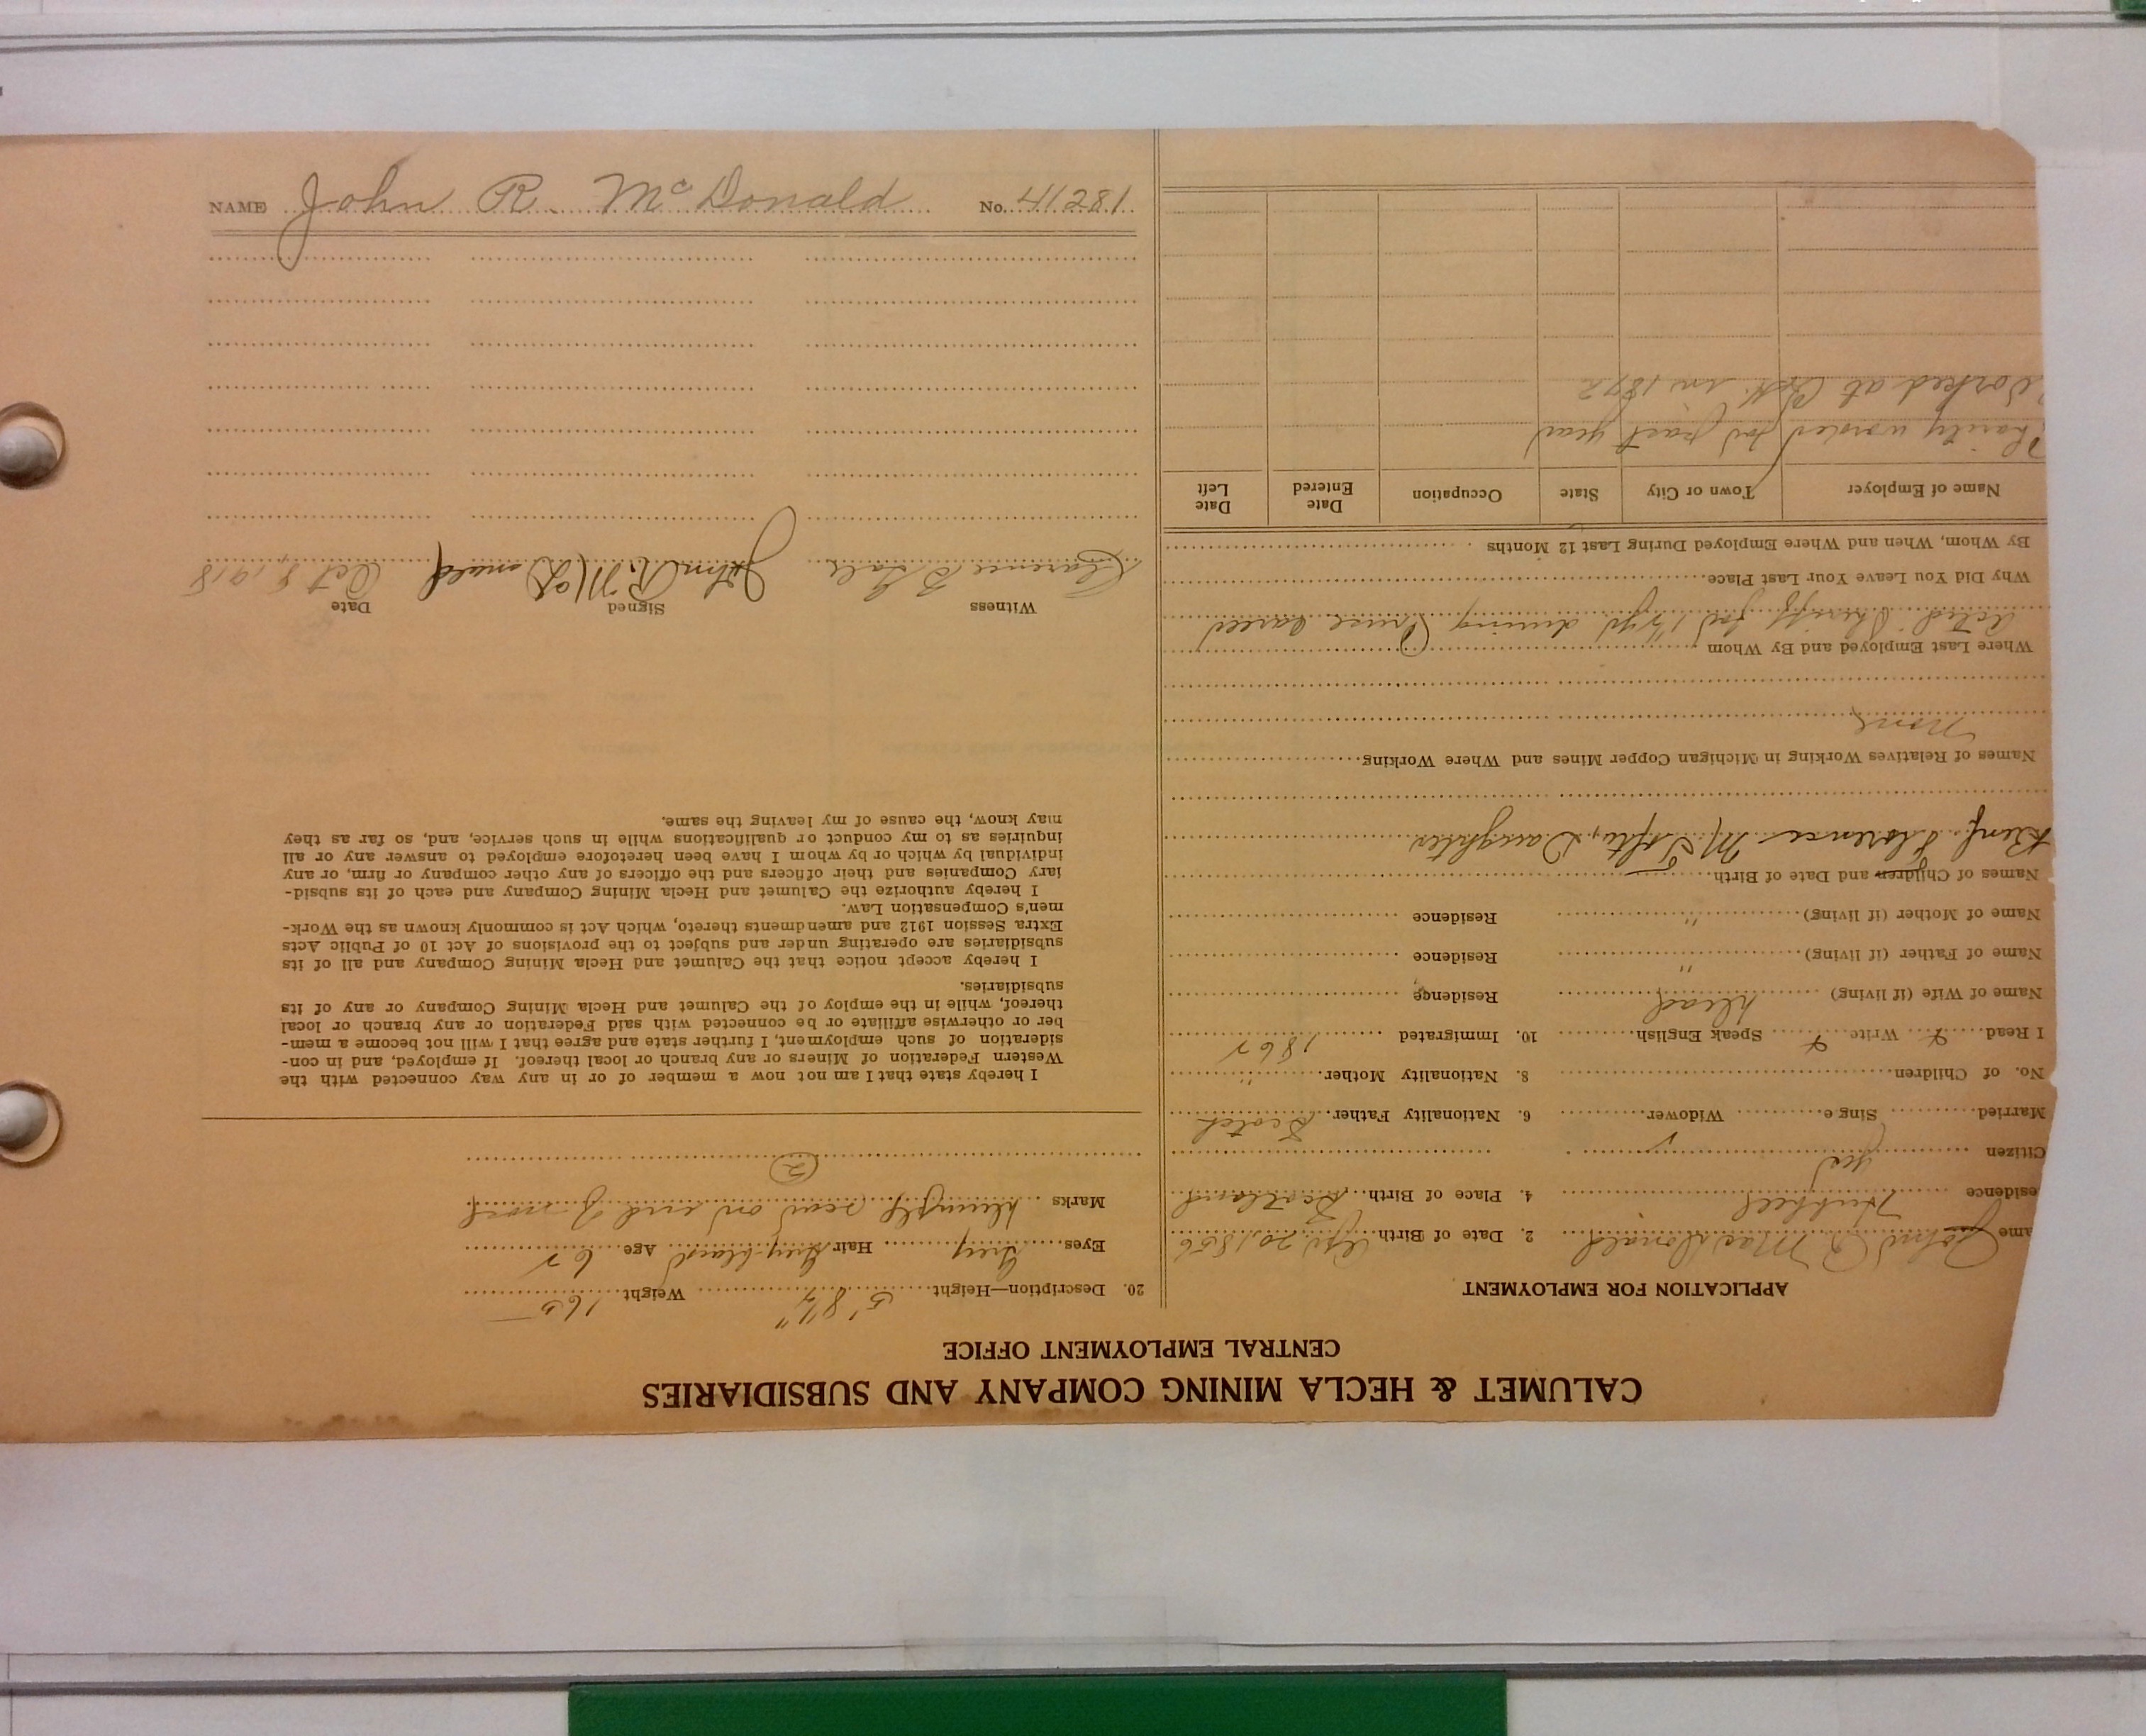 CALUMET & HECLA MINING COMPANY AND SUBSIDIARIES
CENTRAL EMPLOYMENT OFFICE
APPLICATION FOR EMPLOYMENT
ame John R. MacDonald 2. Date of Birth Apr. 20, 1856
esidence Hubbell 4. Place of Birth Scotland
Citizen yes
Married Sing e Widower ✓ 6. Nationality Father Scotch
No. of Children 8. Nationality Mother "
I Read Write Speak English 10. Immigrated 1862
Name of Wife (if living) dead Residence
Name of Father (if living) " Residence
Name of Mother (if living) " Residence
Names of Children and Date of Birth
Benf. Florence M. Daughter
Names of Relatives Working in Michigan Copper Mines and Where Working
None
Where Last Employed and By Whom
Acted Sheriff for 1 1/2 yr during Cruse career
Why Did You Leave Your Last Place
By Whom, When and Where Employed During Last 12 Months
Name of Employer Town or City State Occupation Date Entered Date Left
for past year
Worked at C&H. in 1872
20. Description—Height 5' 8 1/2" Weight 165
Eyes Grey Hair Grey-black Age 62
Marks scar on end of nose
2
I hereby state that I am not now a member of or in any way connected with the
Western Federation of Miners or any branch or local thereof. If employed, and in con-
sideration of such employment, I further state and agree that I will not become a mem-
ber or otherwise affiliate or be connected with said Federation or any branch or local
thereof, while in the employ of the Calumet and Hecla Mining Company or any of its
subsidiaries.
I hereby accept notice that the Calumet and Hecla Mining Company and all of its
subsidiaries are operating under and subject to the provisions of Act 10 of Public Acts
Extra Session 1912 and amendments thereto, which Act is commonly known as the Work-
men's Compensation Law.
I hereby authorize the Calumet and Hecla Mining Company and each of its subsid-
iary Companies and their officers and the officers of any other company or firm, or any
individual by which or by whom I have been heretofore employed to answer any or all
inquiries as to my conduct or qualifications while in such service, and, so far as they
may know, the cause of my leaving the same.
Witness Signed Date
Clarence B John R. McDonald Oct 8, 1918
NAME John R. McDonald No. 41281